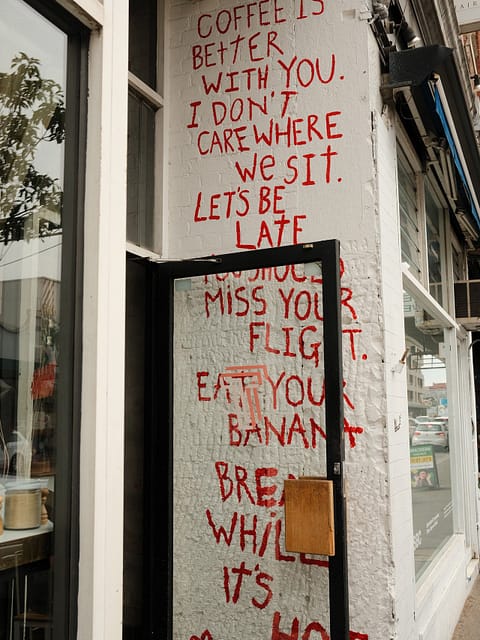 COFFEE IS
BETTER
WITH YOU.
I DON'T
CARE WHERE
We SIT.
LET'S BE
LATE
YOU SHOULD
MISS YOUR
FLIGHT.
EAT YOUR
BANANA
BREA
WHILE
IT'S
HO